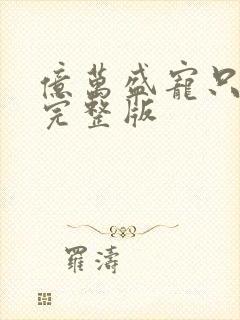 億萬盛寵只
完整版
羅濤